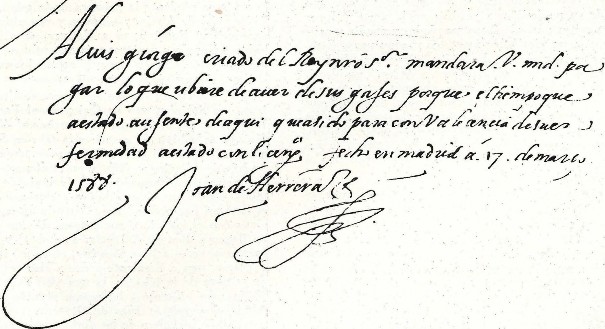 A luis giorge criado del Rey nro sor. mandara V. md. pa
gar lo que ubiere de aver de sus gajes porque el tiempo que
a estado ausente de aqui que a sido para con Valencia de su en
fermedad a estado con licena. fecho en madrid a. 17. de março
1588.
Joan de Herrera